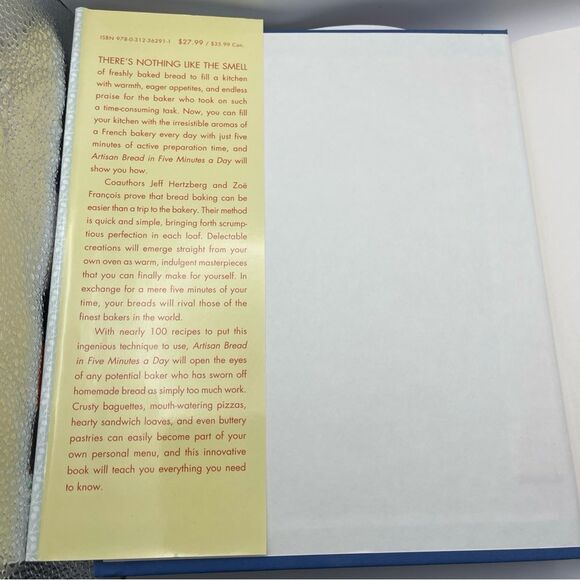 ISBN 978-0-312-36291-1 $27.99 / $35.99 Can.
THERE'S NOTHING LIKE THE SMELL
of freshly baked bread to fill a kitchen
with warmth, eager appetites, and endless
praise for the baker who took on such
a time-consuming task. Now, you can fill
your kitchen with the irresistible aromas of
a French bakery every day with just five
minutes of active preparation time, and
Artisan Bread in Five Minutes a Day will
show you how.
Coauthors Jeff Hertzberg and Zoë
François prove that bread baking can be
easier than a trip to the bakery. Their method
is quick and simple, bringing forth scrump-
tious perfection in each loaf. Delectable
creations will emerge straight from your
own oven as warm, indulgent masterpieces
that you can finally make for yourself. In
exchange for a mere five minutes of your
time, your breads will rival those of the
finest bakers in the world.
With nearly 100 recipes to put this
ingenious technique to use, Artisan Bread
in Five Minutes a Day will open the eyes
of any potential baker who has sworn off
homemade bread as simply too much work.
Crusty baguettes, mouth-watering pizzas,
hearty sandwich loaves, and even buttery
pastries can easily become part of your
own personal menu, and this innovative
book will teach you everything you need
to know.